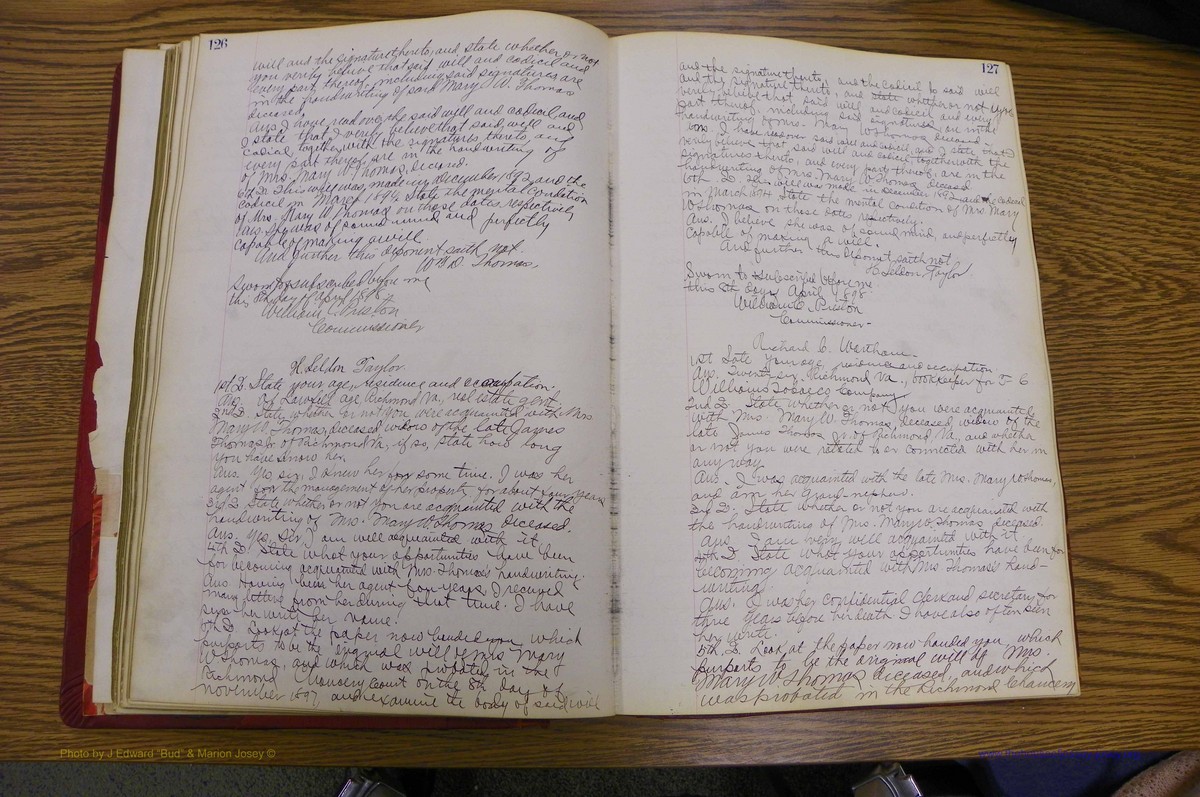 126
will and the signature thereto, and state whether or not
you verily believe that said will and codicil and
every part thereof, including said signatures are
in the handwriting of said Mary W. Thomas
deceased.
Ans. I have read over the said will and codicil, and
I state that I verily believe that said will and
codicil together with the signatures thereto, and
every part thereof are in the handwriting of
of Mrs. Mary W Thomas, deceased.
6th D. This will was made in December 1892 and the
codicil in March 1894. State the mental condition
of Mrs. Mary W Thomas on those dates respectively
Ans. She was of sound mind and perfectly
capable of making a will.
And further this deponent saith not
W D Thomas.
Sworn to & subscribed before me
this 8th day of April 1898
William C Preston
Commissioner
H Seldon Taylor.
1st D. State your age, residence and occupation.
Ans. Of lawful age Richmond Va., real estate agent.
2nd D. State whether or not you were acquainted with Mrs.
Mary W. Thomas, deceased widow of the late James
Thomas Jr of Richmond Va, if so, state how long
you have know her.
Ans. Yes, sir, I knew her for some time. I was her
agent for the management of her property for about four years
3rd D. State whether or not you are acquainted with the
handwriting of Mrs. Mary W Thomas deceased.
Ans. Yes, Sir, I am well acquainted with it
4th D. State what your opportunities have been
for becoming acquainted with Mrs. Thomas's handwriting.
Ans. Having been her agent for years I received
many letters from her during that time. I have
seen her write her name.
5th D. Look at the paper now handed you, which
purports to be the original will of Mrs Mary
W Thomas, and which was probated in the
Richmond Chancery Court on the 8th day of
November 1897 and examine the body of said will
127
and the signature thereto, and the codicil to said will
and the signature thereto, and state whether or not you
verily believe that said will and codicil and every
part thereof including said signatures, are in the
handwriting of Mrs. Mary W Thomas, deceased.
Ans. I have read over said will and codicil, and I state that I
verily believe that said will and codicil together with the
signatures thereto, and every part thereof, are in the
handwriting of Mrs. Mary W Thomas deceased
6th D This will was made in December 1892 and the codicil
in March 1894. State the mental condition of Mrs Mary
W Thomas on those dates respectively.
Ans. I believe she was of sound mind, and perfectly
capable of making a will.
And further this deponent saith not
H Seldon Taylor
Sworn to & subscribed before me
this 8th day of April 1898
William C. Preston
Commissioner-
Richard C. Wortham.
1st State your age, residence and occupation
Ans. Twenty six. Richmond Va., bookkeeper for T C
Williams Tobacco Company
2nd D. State whether or not you were acquainted
with Mrs. Mary W. Thomas, deceased, widow of the
late James Thomas Jr. of Richmond Va., and whether
or not you were related to or connected with her in
any way
Ans. I was acquainted with the late Mrs. Mary W Thomas,
and am her grand-nephew.
3rd D. State whether or not you are acquainted with
the handwriting of Mrs. Mary W. Thomas deceased.
Ans I am very well acquainted with it
4th D State what your opportunities have been for
becoming acquainted with Mrs Thomas's hand-
writing
Ans. I was her confidential clerk and secretary for
three years before her death I have also often seen
her write.
5th D. Look at the paper now handed you, which
purports to be the original will of Mrs.
Mary W Thomas deceased, and which
was probated in the Richmond Chancery
Photo by J Edward "Bud" & Marion Josey ©